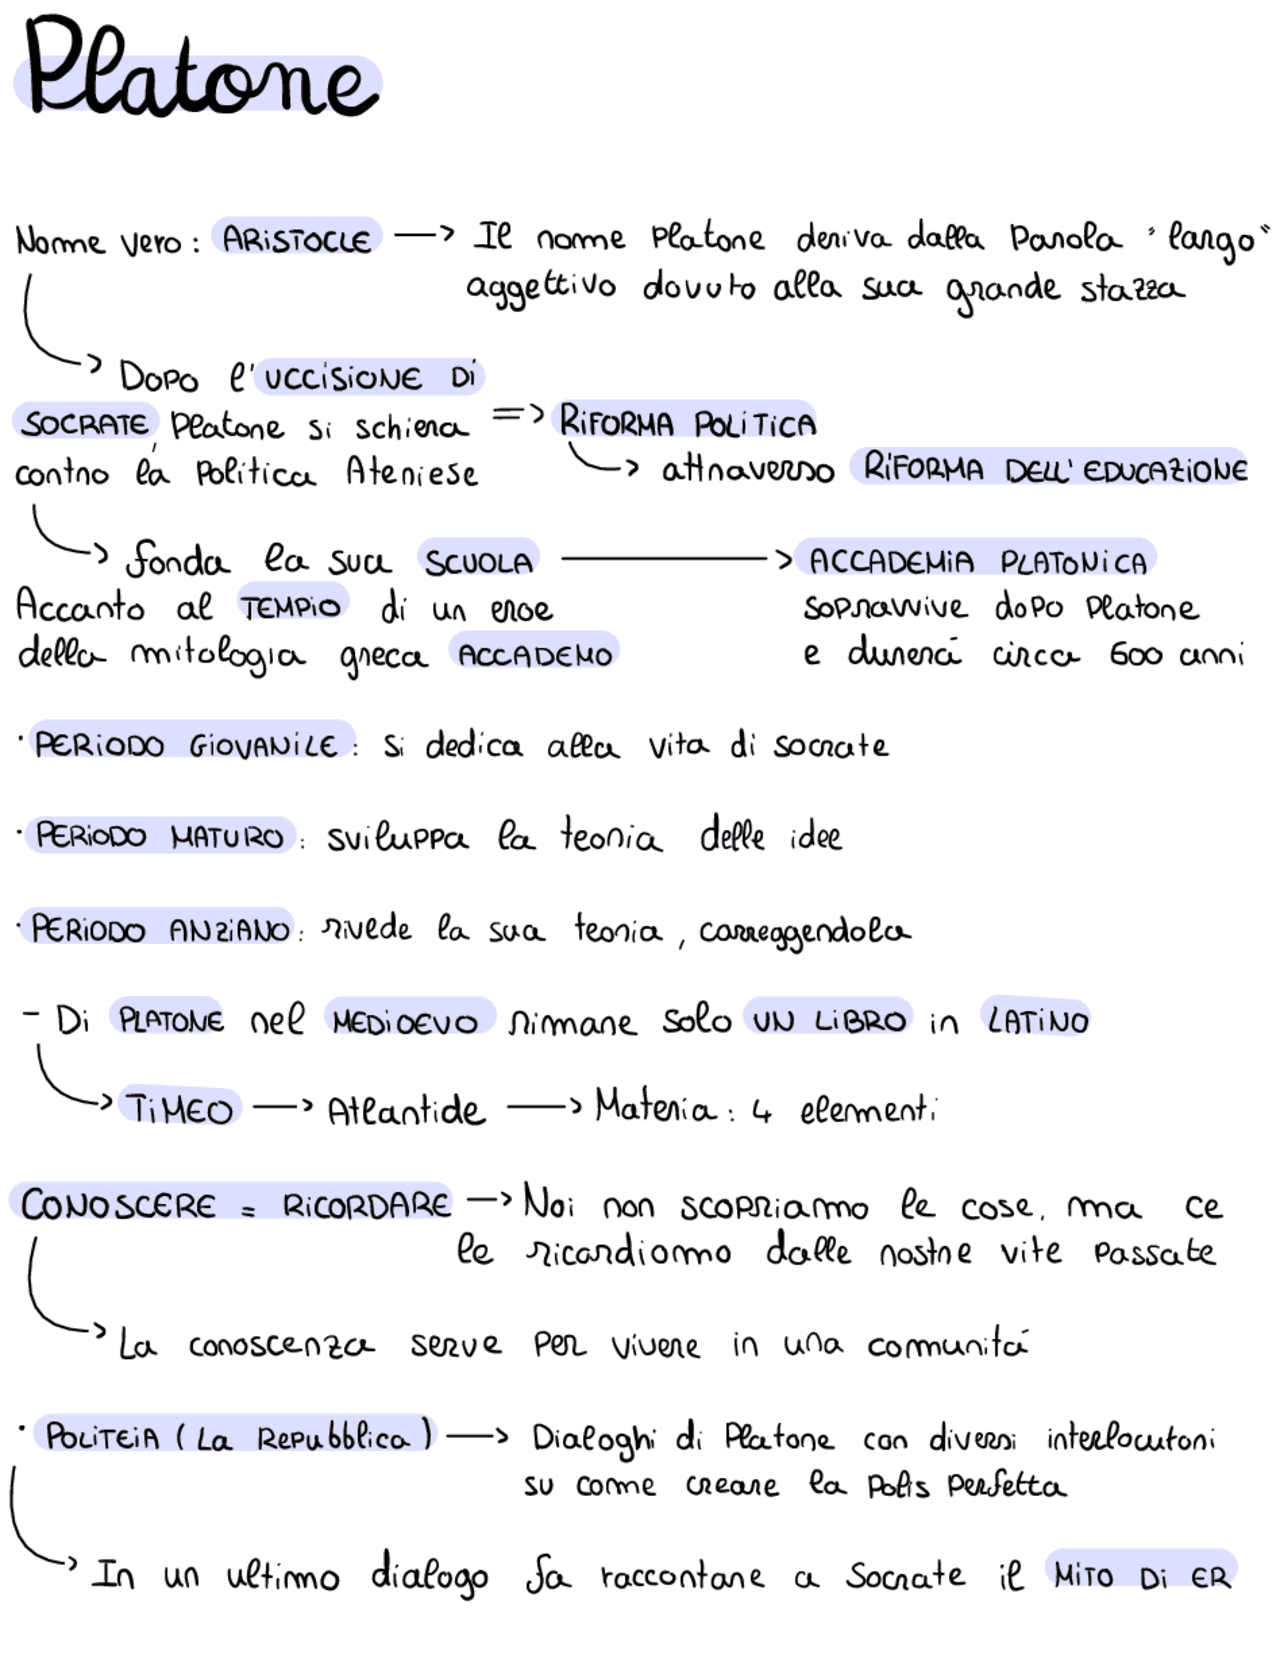 Platone
Nome vero: ARISTOCLE —> Il nome Platone deriva dalla parola "largo"
aggettivo dovuto alla sua grande stazza
—> Dopo l'UCCISIONE DI
SOCRATE, Platone si schiera => RIFORMA POLITICA
contro la politica Ateniese —> attraverso RIFORMA DELL'EDUCAZIONE
—> fonda la sua SCUOLA —> ACCADEMIA PLATONICA
Accanto al TEMPIO di un eroe sopravvive dopo Platone
della mitologia greca ACCADEMO e durerá circa 600 anni
· PERIODO GIOVANILE: si dedica alla vita di socrate
· PERIODO MATURO: sviluppa la teoria delle idee
· PERIODO ANZIANO: rivede la sua teoria, correggendola
- Di PLATONE nel MEDIOEVO rimane solo UN LIBRO in LATINO
—> TIMEO —> Atlantide —> Materia: 4 elementi
CONOSCERE = RICORDARE —> Noi non scopriamo le cose, ma ce
le ricordiamo dalle nostre vite passate
—> La conoscenza serve per vivere in una comunitá
· POLITEIA (La Repubblica) —> Dialoghi di Platone con diversi interlocutori
su come creare la polis perfetta
—> In un ultimo dialogo fa raccontare a Socrate il MITO DI ER